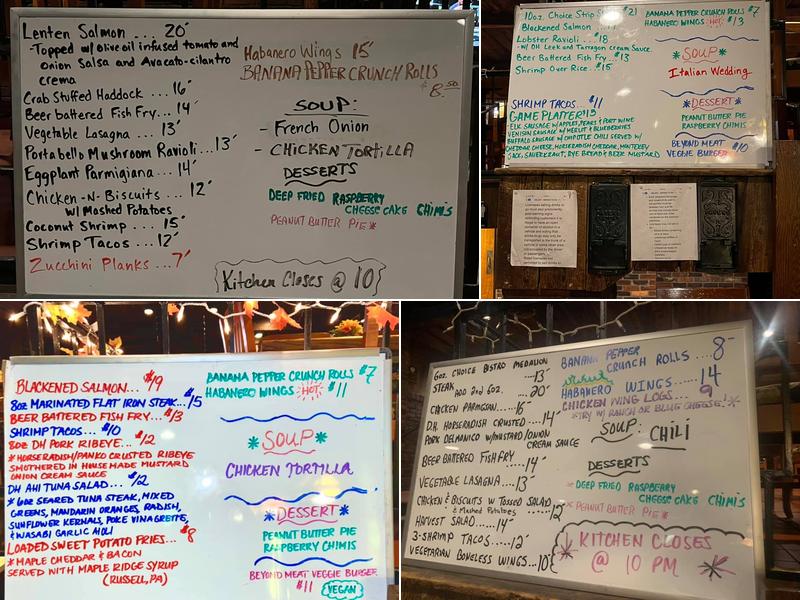 Lenten Salmon ... 20
-Topped w/ olive oil infused tomato and
onion Salsa and Avacato-cilantro
crema
Crab Stuffed Haddock ... 16
Beer battered Fish Fry ... 14
Vegetable Lasagna ... 13
Portabello Mushroom Ravioli... 13
Eggplant Parmigiana ... 14
Chicken-N-Biscuits ... 12
w/ Mashed Potatoes
Coconut Shrimp ... 15
Shrimp Tacos ... 12
Zucchini Planks ... 7
Habanero Wings 15
BANANA PEPPER CRUNCH ROLLS
$8.50
SOUP:
- French Onion
- CHICKEN TORTILLA
DESSERTS
DEEP FRIED RASPBERRY
CHEESE CAKE CHIMIS
PEANUT BUTTER PIE*
Kitchen Closes @ 10
10oz. Choice Strip $21
Blackened Salmon
Lobster Ravioli ... $18
Beer Battered Fish Fry .. $13
Shrimp Over Rice .. $15
SHRIMP TACOS .. $11
GAME PLATTER $19
BANANA PEPPER CRUNCH ROLLS $7
HABANERO WINGS HOT $13
*SOUP*
Italian Wedding
*DESSERT*
PEANUT BUTTER PIE
RASPBERRY CHIMIS
BEYOND MEAT
VEGGIE BURGER $10
BLACKENED SALMON... $19
8oz MARINATED FLAT IRON STEAK.. $15
BEER BATTERED FISH FRY... $13
SHRIMP TACOS... $10
8oz DH PORK RIBEYE.. $12
*HORSERADISH/PANKO CRUSTED RIBEYE
SMOTHERED IN HOUSE MADE MUSTARD
ONION CREAM SAUCE
DH AHI TUNA SALAD... $12
* 6oz SEARED TUNA STEAK, MIXED
GREENS, MANDARIN ORANGES, RADISH,
SUNFLOWER KERNALS, POKE VINAGRETTE,
& WASABI GARLIC AIOLI
LOADED SWEET POTATO FRIES... $8
*MAPLE CHEDDAR & BACON
SERVED WITH MAPLE RIDGE SYRUP
(RUSSELL, PA)
BANANA PEPPER CRUNCH ROLLS $7
HABANERO WINGS HOT $11
*SOUP*
CHICKEN TORTILLA
*DESSERT*
PEANUT BUTTER PIE
RASPBERRY CHIMIS
BEYOND MEAT VEGGIE BURGER
$11 VEGAN
6oz. CHOICE BISTRO MEDALION
STEAK ... 13
ADD 2nd 6oz. ... 20
CHICKEN PARMESAN ... 16
DH HORSERADISH CRUSTED ... 14
PORK DELMANICO W/MUSTARD/ONION
CREAM SAUCE
BEER BATTERED FISH FRY ... 14
VEGETABLE LASAGNA ... 13
CHICKEN & BISCUITS W TOSSED SALAD
& Mashed Potatoes 12
HARVEST SALAD ... 14
3-SHRIMP TACOS ... 12
VEGETARIAN BONELESS WINGS ... 10
BANANA PEPPER
CRUNCH ROLLS ... 8
HABANERO WINGS ... 14
CHICKEN WING LOGS ... 9
*TRY W/ RANCH OR BLUE CHEESE!
SOUP: CHILI
DESSERTS
*DEEP FRIED RASPBEARY
CHEESE CAKE CHIMIS
*PEANUT BUTTER PIE*
KITCHEN CLOSES
@ 10 PM